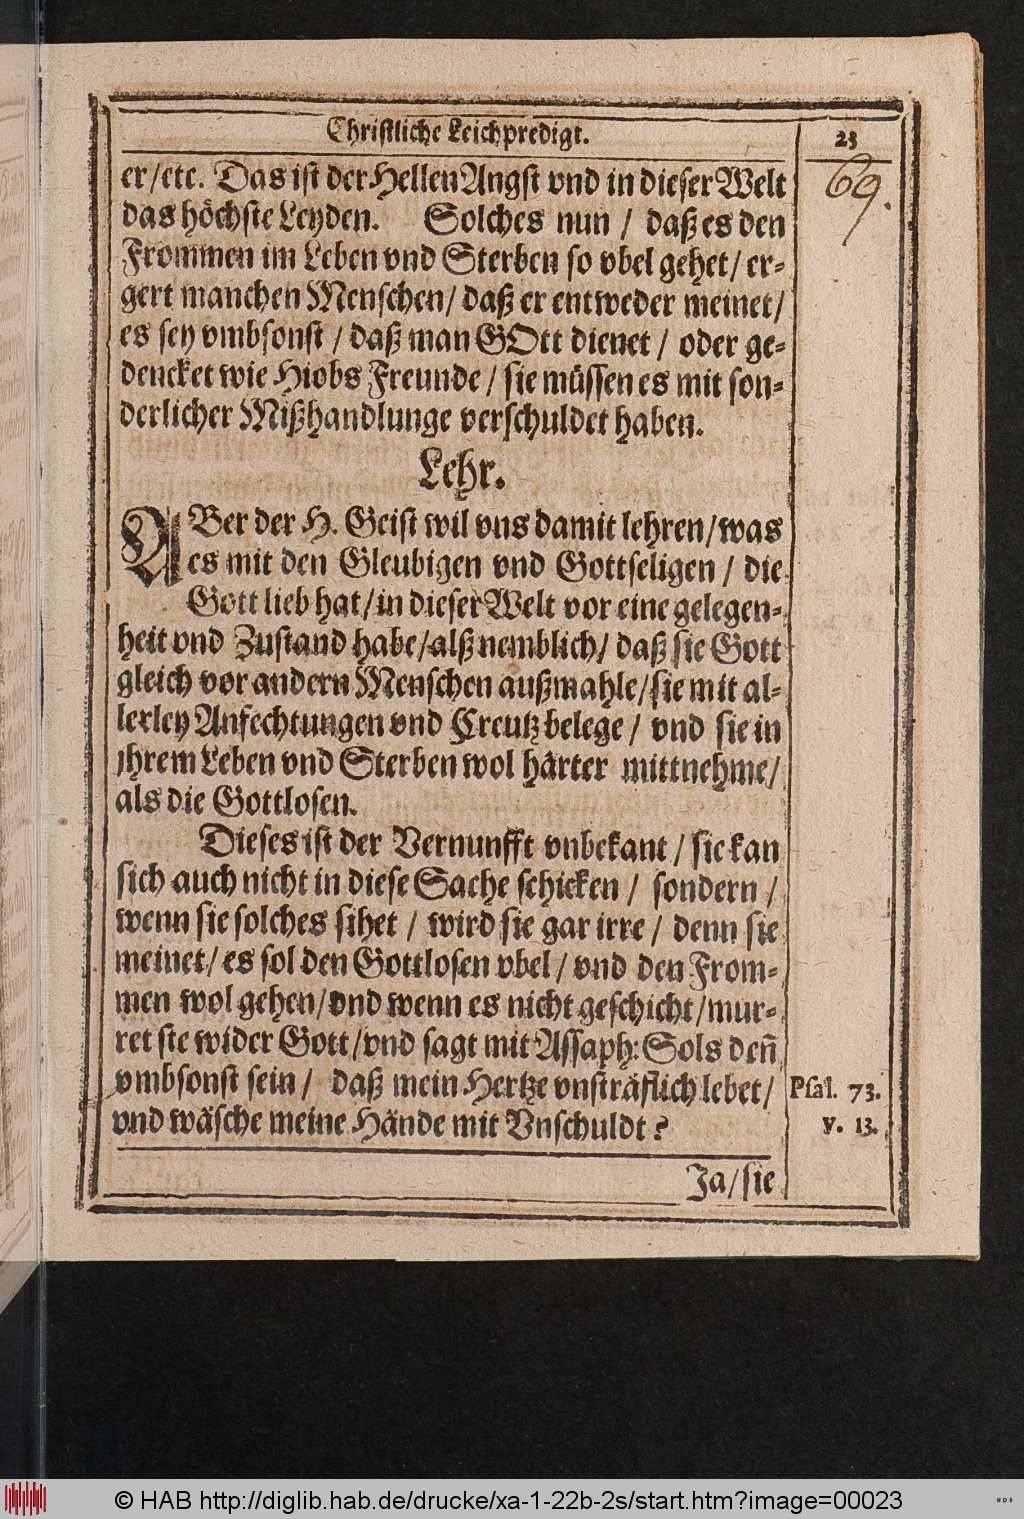 Christliche Leichpredigt.
23
69.
er/etc. Das ist der Hellen Angst vnd in dieser Welt
das höchste Leyden. Solches nun / daß es den
Frommen im Leben vnd Sterben so vbel gehet/ er-
gert manchen Menschen/ daß er entweder meinet/
es sey vmbsonst / daß man GOtt dienet / oder ge-
dencket wie Hiobs Freunde / sie müssen es mit son-
derlicher Mißhandlunge verschuldet haben.
Lehr.
ABer der H. Geist wil vns damit lehren/was
es mit den Gleubigen vnd Gottseligen / die
Gott lieb hat/in dieser Welt vor eine gelegen-
heit vnd Zustand habe/alß nemblich/ daß sie Gott
gleich vor andern Menschen außmahle/sie mit al-
lerley Anfechtungen vnd Creutz belege / vnd sie in
jhrem Leben vnd Sterben wol härter mittnehme/
als die Gottlosen.
Dieses ist der Vernunfft vnbekant / sie kan
sich auch nicht in diese Sache schicken / sondern /
wenn sie solches sihet / wird sie gar irre / denn sie
meinet/ es sol den Gottlosen vbel / vnd den From-
men wol gehen/vnd wenn es nicht geschicht/mur-
ret sie wider Gott/vnd sagt mit Assaph: Sols deñ
vmbsonst sein / daß mein Hertze vnsträflich lebet/
Psal. 73.
vnd wäsche meine Hände mit Vnschuldt?
v. 13.
Ja/sie
© HAB http://diglib.hab.de/drucke/xa-1-22b-2s/start.htm?image=00023